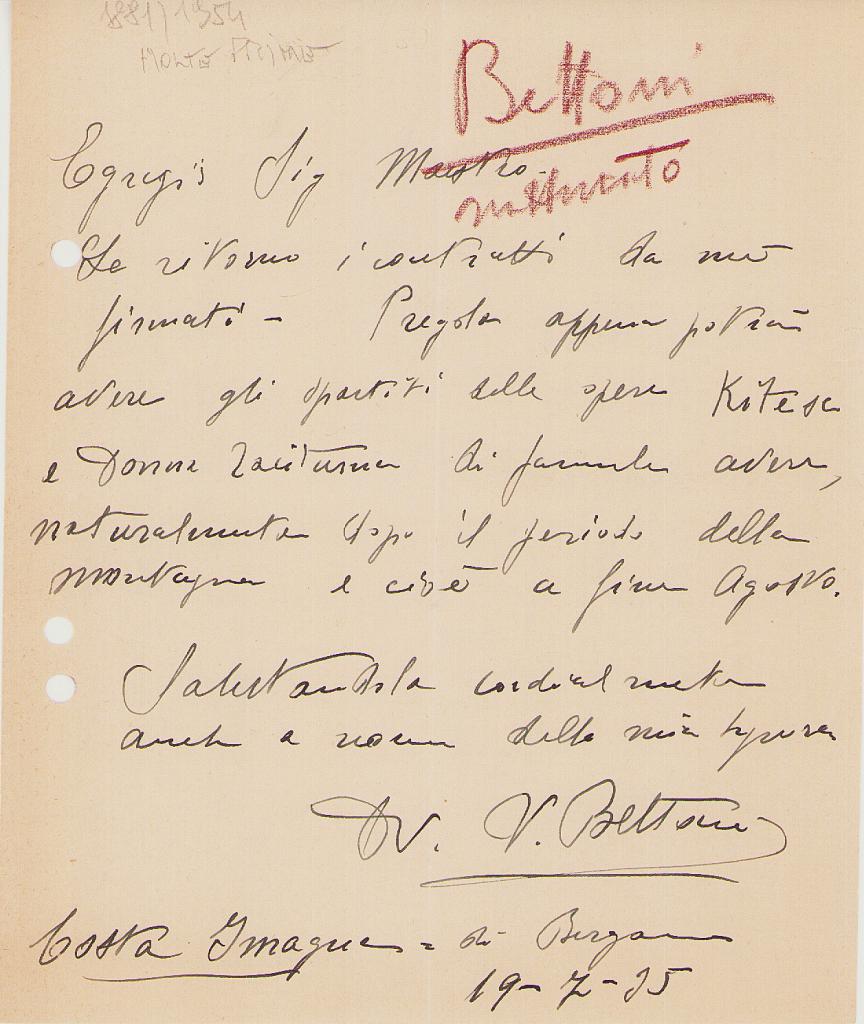 1881/1954
Bettoni
Egregio Sig Maestro -
Le ritorno i contratti da me
firmati - Pregola appena potrà
avere gli spartiti delle opere Kitesc
e Donna Taciturna di farmele avere,
naturalmente dopo il periodo della
montagna e cioè a fine Agosto.
Salutandola cordialmente
anche a nome della mia Signora
Dr. V. Bettoni
Costa Imagna = di Bergamo
19-7-35